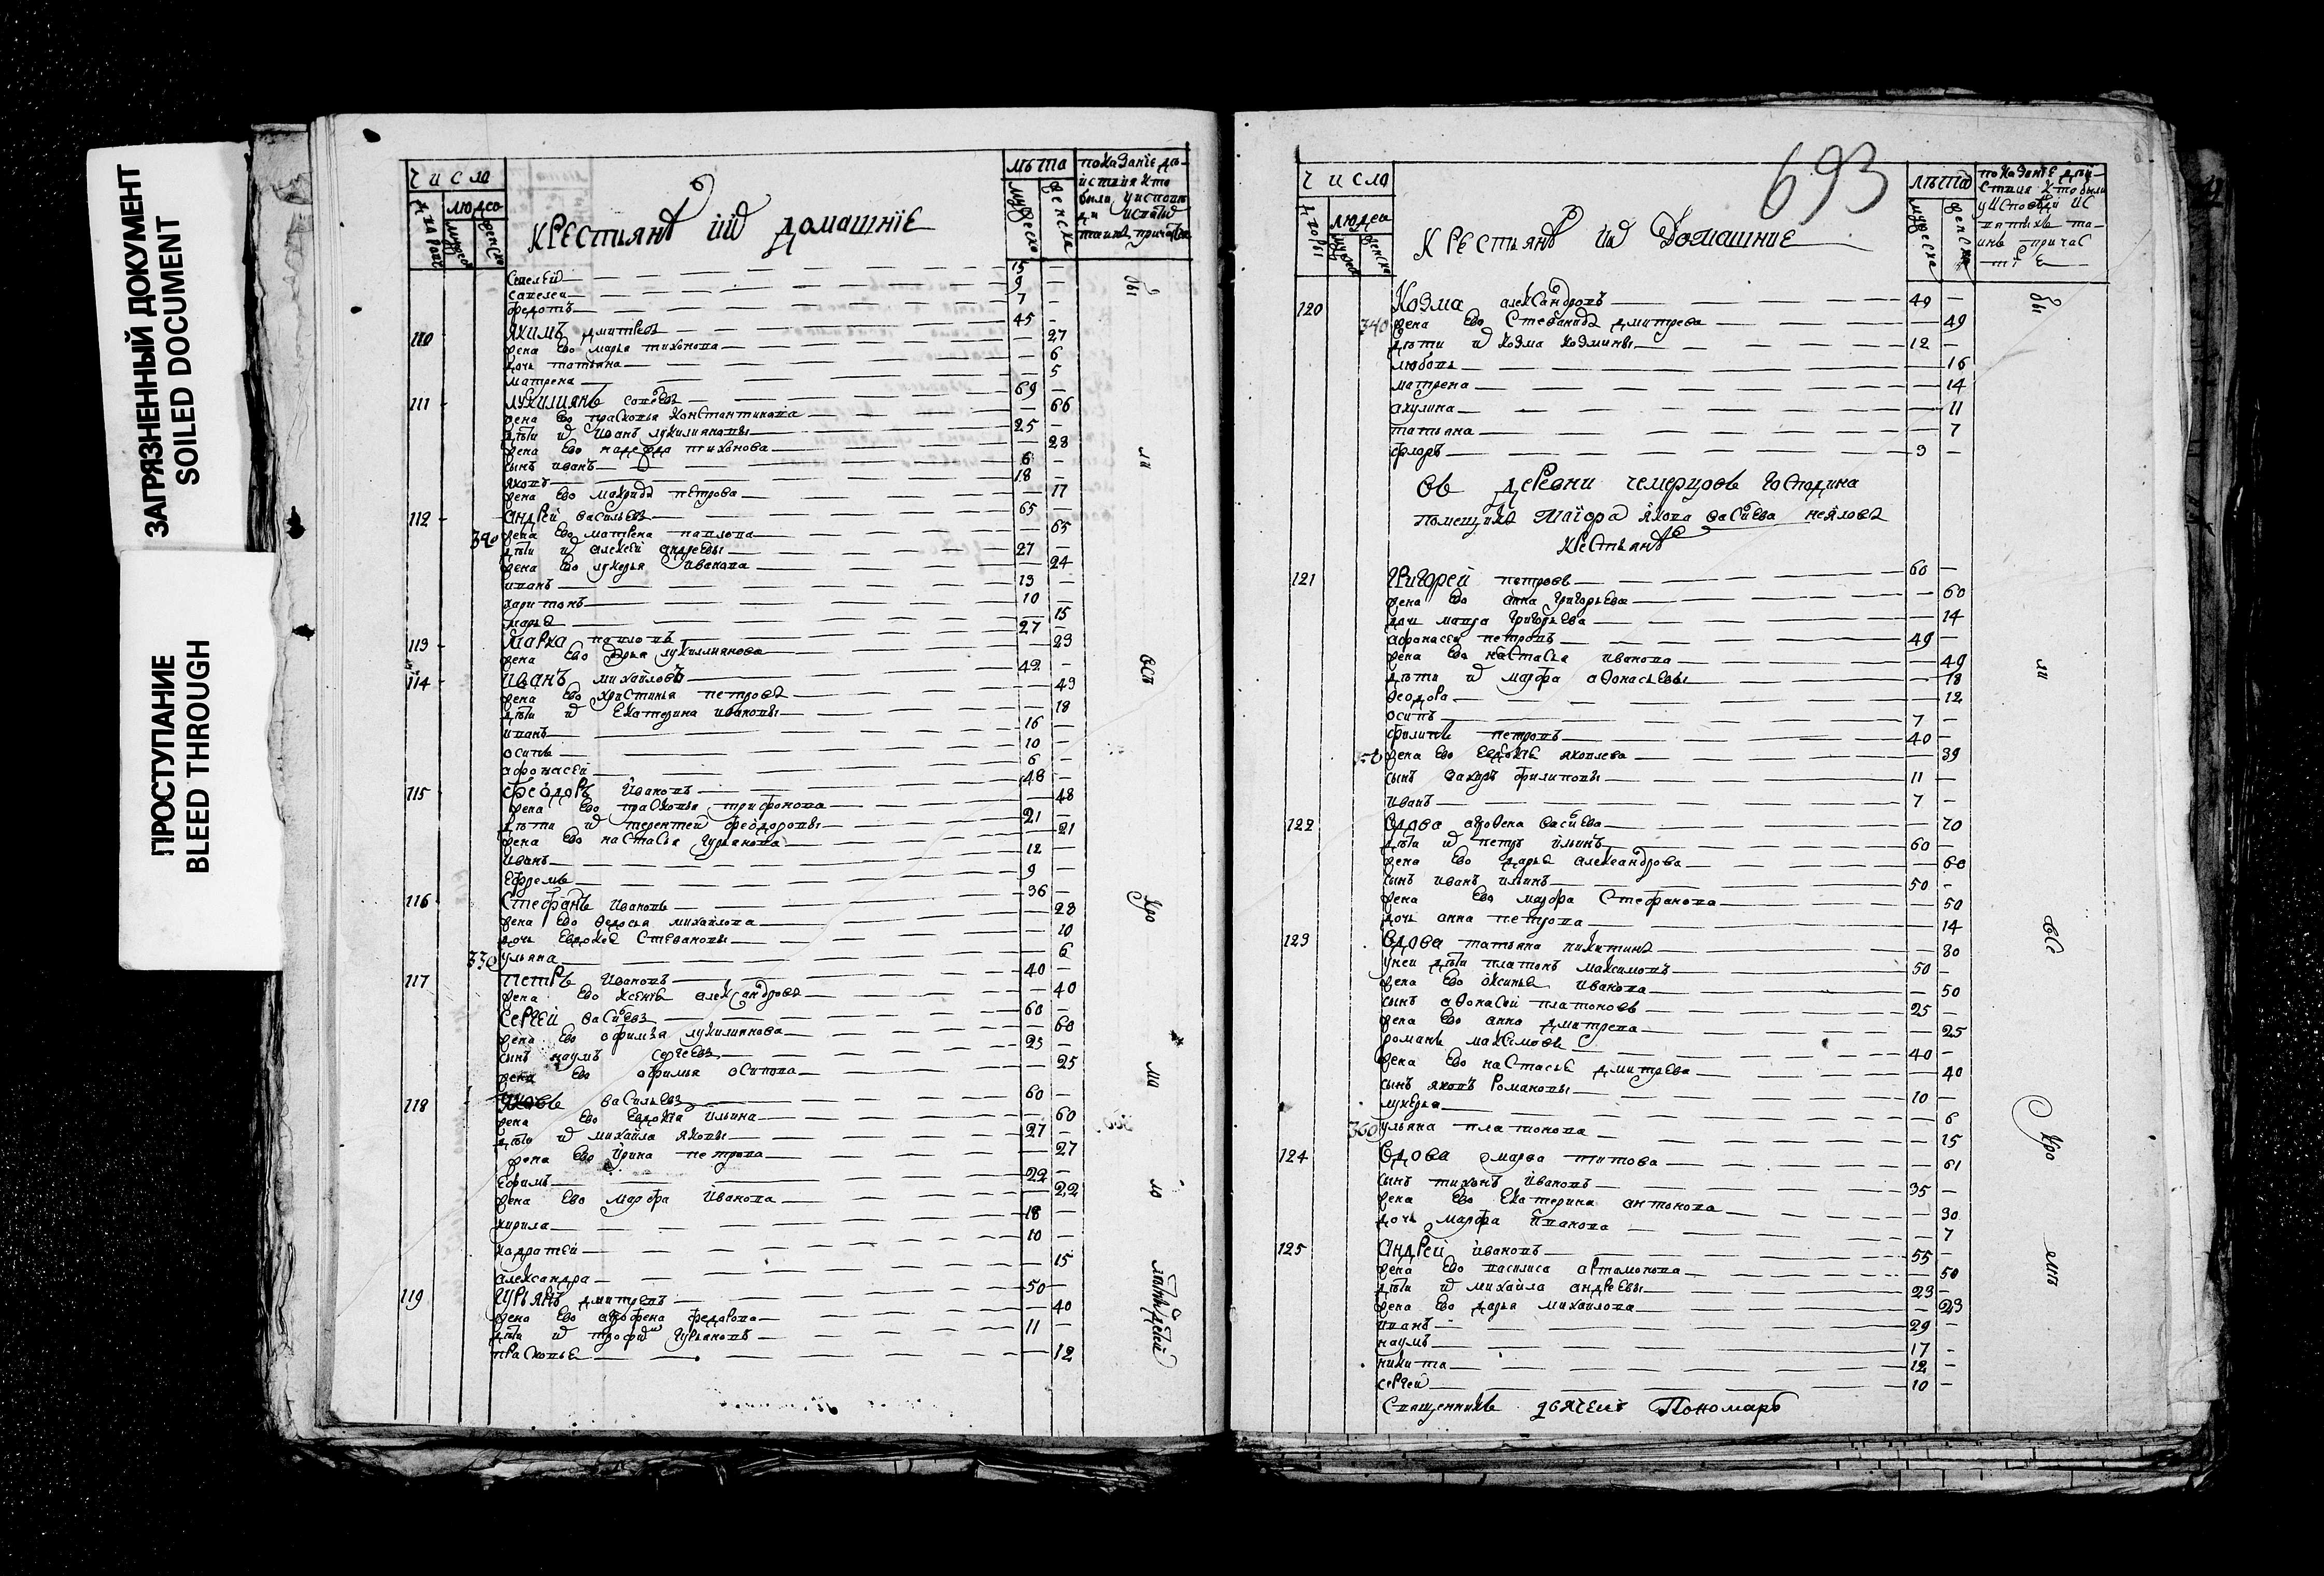 ЗАГРЯЗНЕННЫЙ ДОКУМЕНТ
SOILED DOCUMENT
ПРОСТУПАНИЕ
BLEED THROUGH
число
людеи
лѣта
мужеска
женска
крестьянѣ иⷯ домашнїе
савелеи 9
федотъ 7
110 якимъ дмитревъ 45
жена ево марья тихонова 27
дочь татьяна 6
матрена 5
111 лукилиянъ 69
жена ево прасковья констентинова 66
дѣти иⷯ иванъ лукилияновы 25
жена ево надежда тихонова 28
сынъ иванъ 6
яковъ 18
жена ево макрида петрова 17
112 андрей васильевъ 65
жена ево матрена павлова 65
дѣти иⷯ алексеи андреевы 27
жена ево лукерья иванова 24
иванъ 13
харитонъ 10
марья 15
113 марка павловъ 27
жена ево дарья лукиллиянова 23
114 иванъ михаиловъ 42
жена ево христинья петрова 43
дѣти иⷯ екатерина ивановы 18
иванъ 16
осипъ 10
афонасеи 6
115 феодоръ ивановъ 48
жена ево прасковья трифонова 48
дѣти иⷯ терентеи феодоровы 21
жена ево настасья гурьянова 21
иванъ 12
ефремъ 9
116 стефанъ ивановъ 36
жена ево федосья михаилова 28
дочь евдокея стевановы 10
330 ульяна 6
117 петръ ивановъ 40
жена ево ксенья александрова 40
сергеи васиевъ 60
жена ево офимья лукилиянова 60
сынъ наумъ сергеевъ 25
жена ево офимья осипова 25
118 яковъ васильевъ 60
жена ево евдокѣа ильина 60
дѣти иⷯ михаила яковы 27
жена ево ирина петрова 27
ефимъ 22
жена ево марфа иванова 22
кирила 18
кадратеи 10
александра 15
119 гурьянъ дмитревъ 50
жена ево афрофена федорова 40
дѣти иⷯ трофиⷨ гурьяновъ 11
прасковья 12
бы
ли
всѣ
кро
ми
ло
693
число
людеи
лѣта
мужеска
женска
крестьянѣ иⷯ домашние
120 козма александровъ 49
340 жена ево стеванида дмитрева 49
дѣти иⷯ козма козмины 12
любовь 16
матрена 14
акулина 11
татьяна 7
флоръ 3
ов деревни чемерцовѣ господина
помещика маїора якова васиева неѧлова
крестьянѣ
121 григореи петровъ 60
жена ево анна григорьева 60
дочь мавра григорьева 14
афонасеи петровъ 49
жена ево настасья иванова 49
дѣти иⷯ марфа афонасьевы 18
феодора 12
осипъ 7
филипъ петровъ 40
жена ево евдокѣя яковлева 39
сынъ захаръ филиповы 11
иванъ 7
122 вдова васиева 70
дѣти иⷯ петръ ильинъ 60
жена ево дарья александрова 60
сынъ иванъ ильинъ 50
жена ево марфа стефанова 50
дочь анна петрова 14
123 вдова татьяна никитина 80
унеи дѣти платонъ максимовъ 50
жена ево оксинья иванова 50
сынъ афонасеи платоновъ 25
жена ево анна дмитрева 25
романъ максимовъ 40
жена ево настасья дмитрева 40
сынъ яковъ романовы 10
лукерья 6
360 ульяна платонова 15
124 вдова марва титова 61
сынъ тихонъ ивановъ 35
жена ево екатерина антонова 30
дочь марфа иванова 7
125 андреи ивановъ 55
жена ево василиса артамонова 50
дѣти иⷯ михаила андреевы 23
жена ево дарья михаилова 23
иванъ 29
наумъ 17
никита 12
сергеи 10
священникъ дьячекъ пономарь
бы
ли
все
кро